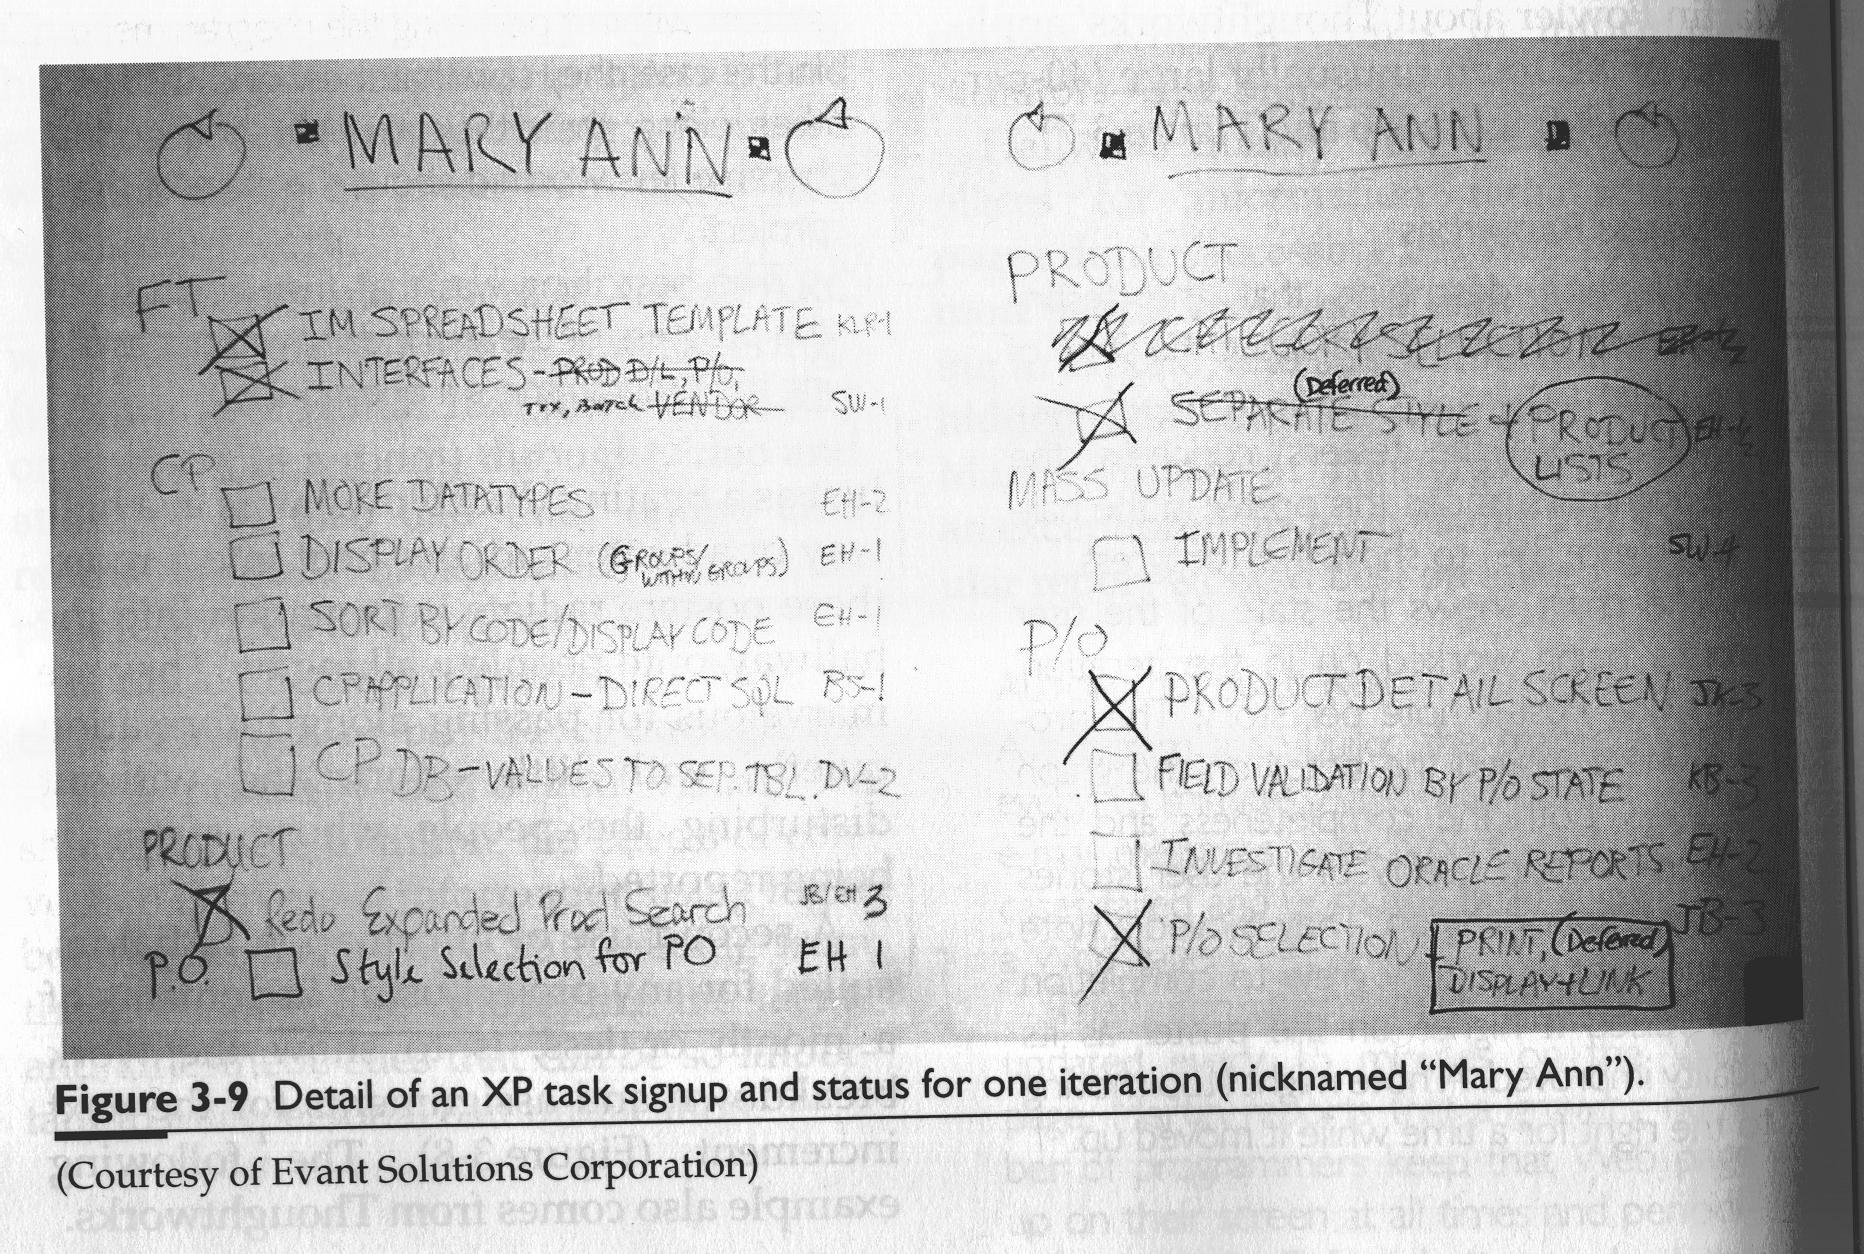 MARY ANN
FT
IM SPREADSHEET TEMPLATE KLP-1
INTERFACES - PROD D/L, P/O,
TXT, BATCH VENDOR SW-1
CP
MORE DATATYPES EH-2
DISPLAY ORDER (GROUPS/ WITHIN GROUPS) EH-1
SORT BY CODE/DISPLAY CODE EH-1
CP APPLICATION - DIRECT SQL BS-1
CP DB - VALUES TO SEP. TBL. DV-2
PRODUCT
Redo Expanded Prod Search JB/EH 3
P.O. Style Selection for PO EH 1
MARY ANN
PRODUCT
CATEGORY SELECTION
(Deferred)
SEPARATE STYLE + PRODUCT
LISTS
MASS UPDATE
IMPLEMENT SW-4
P/O
PRODUCT DETAIL SCREEN JK-3
FIELD VALIDATION BY P/O STATE KB-3
INVESTIGATE ORACLE REPORTS EH-2
P/O SELECTION PRINT, (Deferred) JB-3
DISPLAY + LINK
Figure 3-9 Detail of an XP task signup and status for one iteration (nicknamed “Mary Ann”).
(Courtesy of Evant Solutions Corporation)